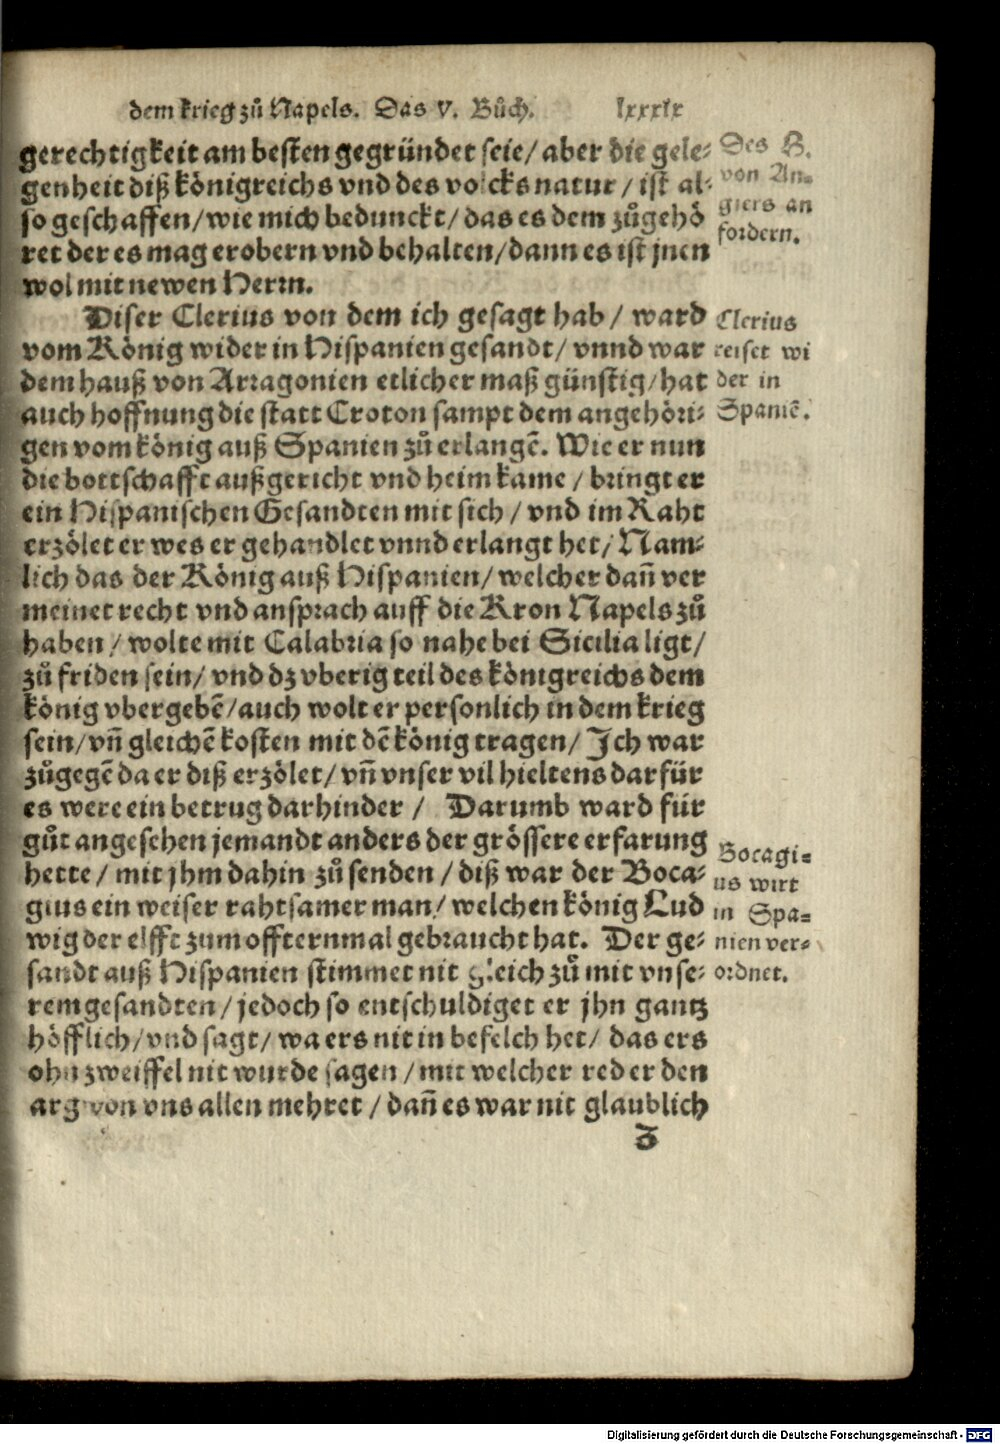 dem krieg zů Napels. Das V. Bůch. lxxxix
gerechtigkeit am besten gegründet seie/ aber die gele⸗
genheit diß königreichs vnd des volcks natur/ ist al⸗
so geschaffen/ wie mich bedunckt/ das es dem zůgehö
ret der es mag erobern vnd behalten/ dann es ist jnen
wol mit newen Herrn.
Des H.
von An⸗
giers an
fordern.
Diser Clerius von dem ich gesagt hab/ ward
vom König wider in Hispanien gesandt/ vnnd war
dem hauß von Arragonien etlicher maß günstig/ hat
auch hoffnung die statt Croton sampt dem angehöri⸗
gen vom könig auß Spanien zů erlangē. Wie er nun
die bottschafft außgericht vnd heim kame/ bringt er
ein Hispanischen Gesandten mit sich/ vnd im Raht
erzölet er wes er gehandlet vnnd erlangt het/ Nam⸗
lich das der König auß Hispanien/ welcher dañ ver
meinet recht vnd ansprach auff die Kron Napels zů
haben/ wolte mit Calabria so nahe bei Sicilia ligt/
zů friden sein/ vnd dz vberig teil des königreichs dem
könig vbergebē/ auch wolt er personlich in dem krieg
sein/ vñ gleichē kosten mit dē könig tragen/ Ich war
zůgegē da er diß erzölet/ vñ vnser vil hieltens darfür
es were ein betrug darhinder/ Darumb ward für
gůt angesehen jemandt anders der grössere erfarung
hette/ mit jhm dahin zů senden/ diß war der Boca⸗
gius ein weiser rahtsamer man/ welchen könig Lud
wig der elfft zum offternmal gebraucht hat. Der ge⸗
sandt auß Hispanien stimmet nit gleich zů mit vnse⸗
rem gesandten/ jedoch so entschuldiget er jhn gantz
höfflich/ vnd sagt/ wa ers nit in befelch het/ das ers
ohn zweiffel nit wurde sagen/ mit welcher red er den
arg von vns allen mehret/ dañ es war nit glaublich
Clerius
reiset wi
der in
Spaniē.
Bocagi⸗
us wirt
in Spa⸗
nien ver⸗
ordnet.
Z
Digitalisierung gefördert durch die Deutsche Forschungsgemeinschaft - DFG